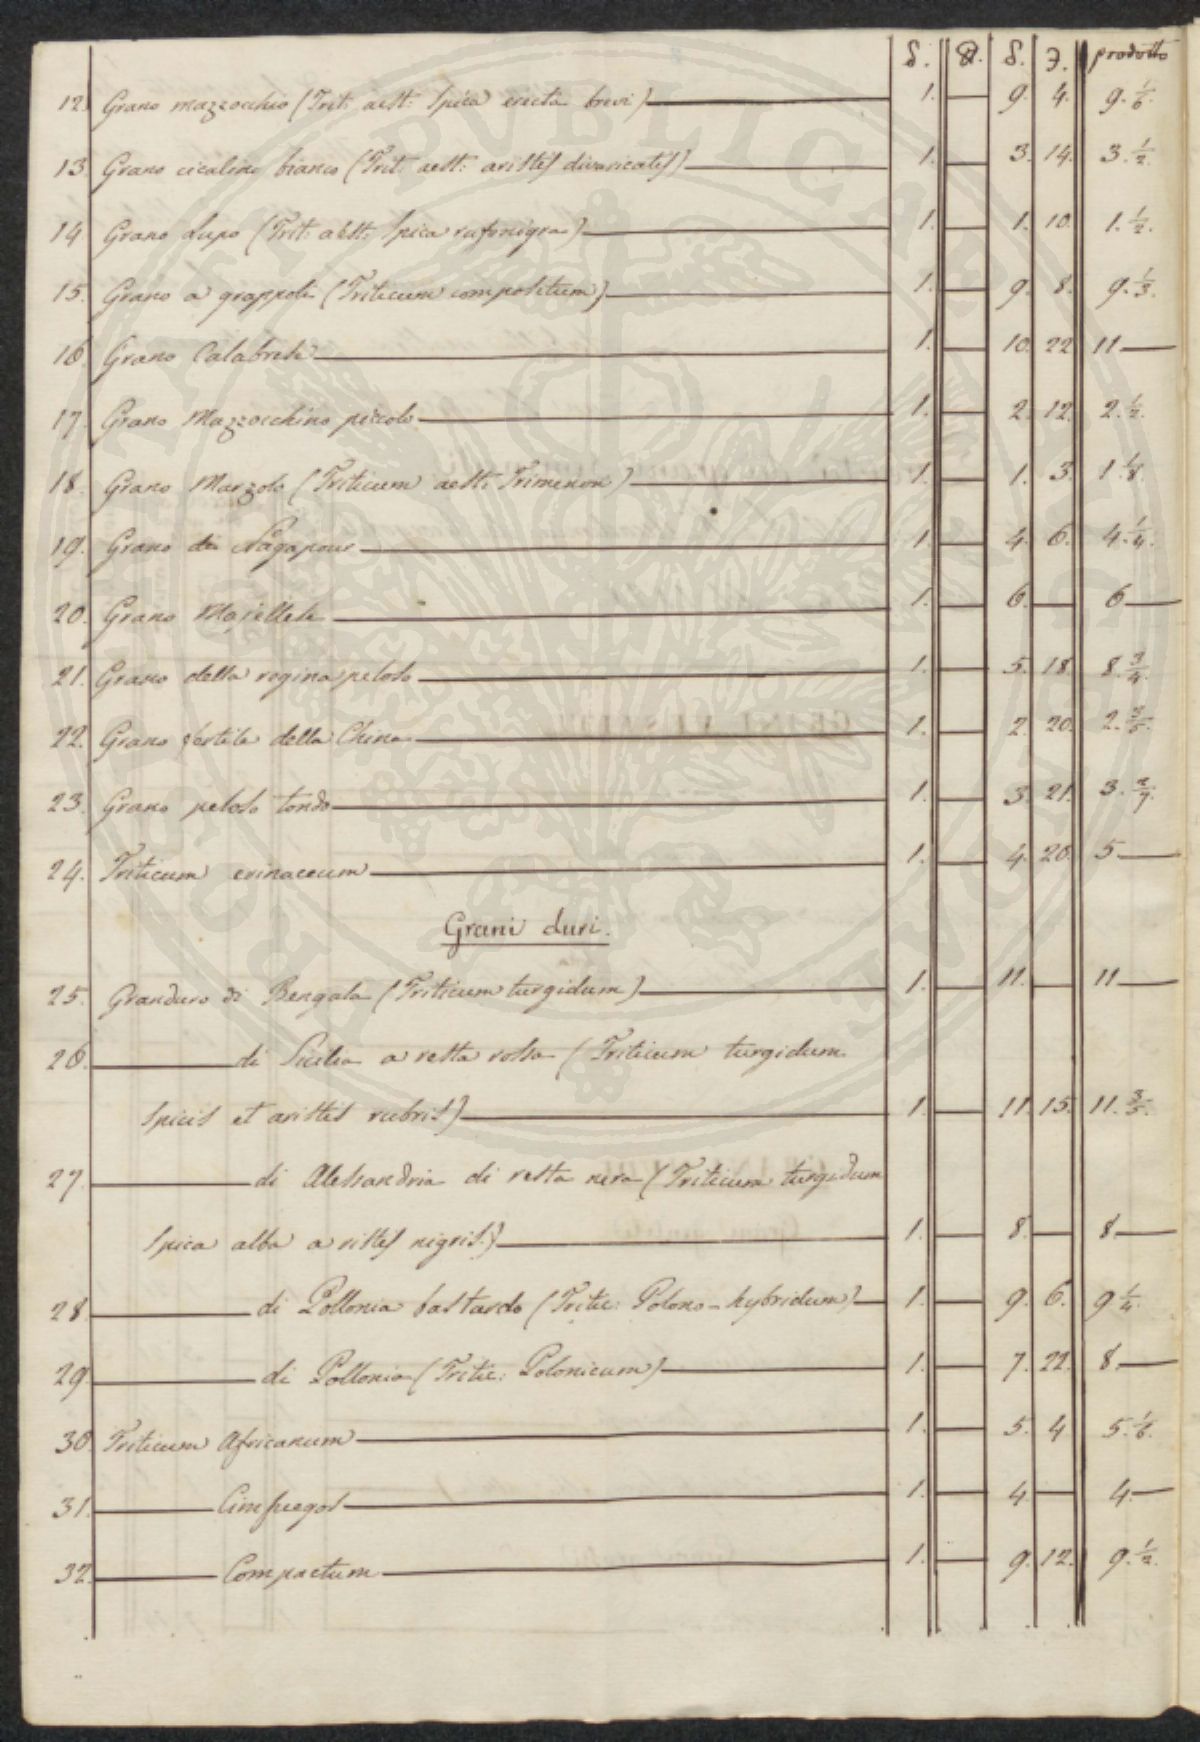 δ. D. δ. Z. prodotto
12. Grano mazzocchio (Trit: aest: Spica erecta brevi) 1. 9. 4. 9. 1/6.
13. Grano cicalino bianco (Trit: aest: aristis divaricatis) 1. 3. 14. 3. 1/2.
14 Grano Lupo (Trit: aest: Spica rufonigra) 1. 1. 10. 1. 1/2.
15. Grano a grappoli (Triticum compositum) 1. 9. 8. 9. 1/3.
16 Grano Calabrese 1. 10. 22 11
17. Grano Mazzocchino piccolo 1. 2. 12. 2. 1/2.
18. Grano Marzolo (Triticum aest: Trimenon) 1. 1. 3. 1 1/8.
19. Grano di Nagapour 1. 4. 6. 4. 1/4.
20. Grano Majellese 1. 6. 6
21. Grano della regina peloso 1. 5. 18. 8. 3/4.
22. Grano fertile della China 1. 2. 20. 2.
23. Grano peloso tondo 1. 3. 21. 3.
24. Triticum erinaceum 1. 4. 20. 5
Grani duri.
25. Granduro di Bengala (Triticum turgidum) 1. 11. 11
26. di Sicilia a resta rossa (Triticum turgidum
Spicis et aristis rubris) 1. 11. 15. 11. 3/5.
27. di Alessandria di resta nera (Triticum turgidum
Spica alba aristis nigris.) 1. 8. 8
28. di Pollonia bastardo (Tritic: Polono-hybridum) 1. 9. 6. 9 1/4.
29. di Pollonia (Tritic: Polonicum) 1. 7. 22. 8.
30. Triticum Africanum 1. 5. 4 5. 1/6.
31. Cimfuegos 1. 4. 4.
32. Compactum 1. 9. 12. 9. 1/2.